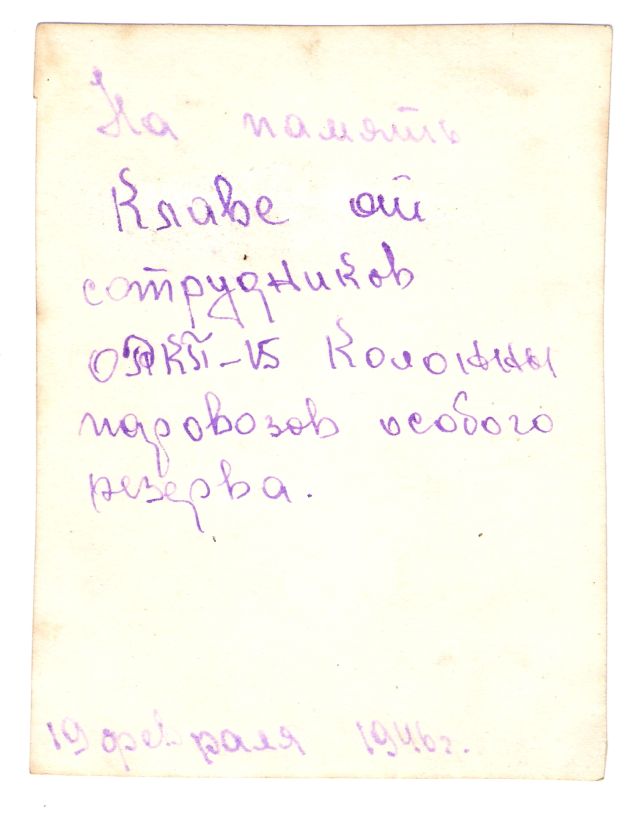 На память
Клаве от
сотрудников
Колонны
паровозов особого
резерва.
19 февраля 1946г.